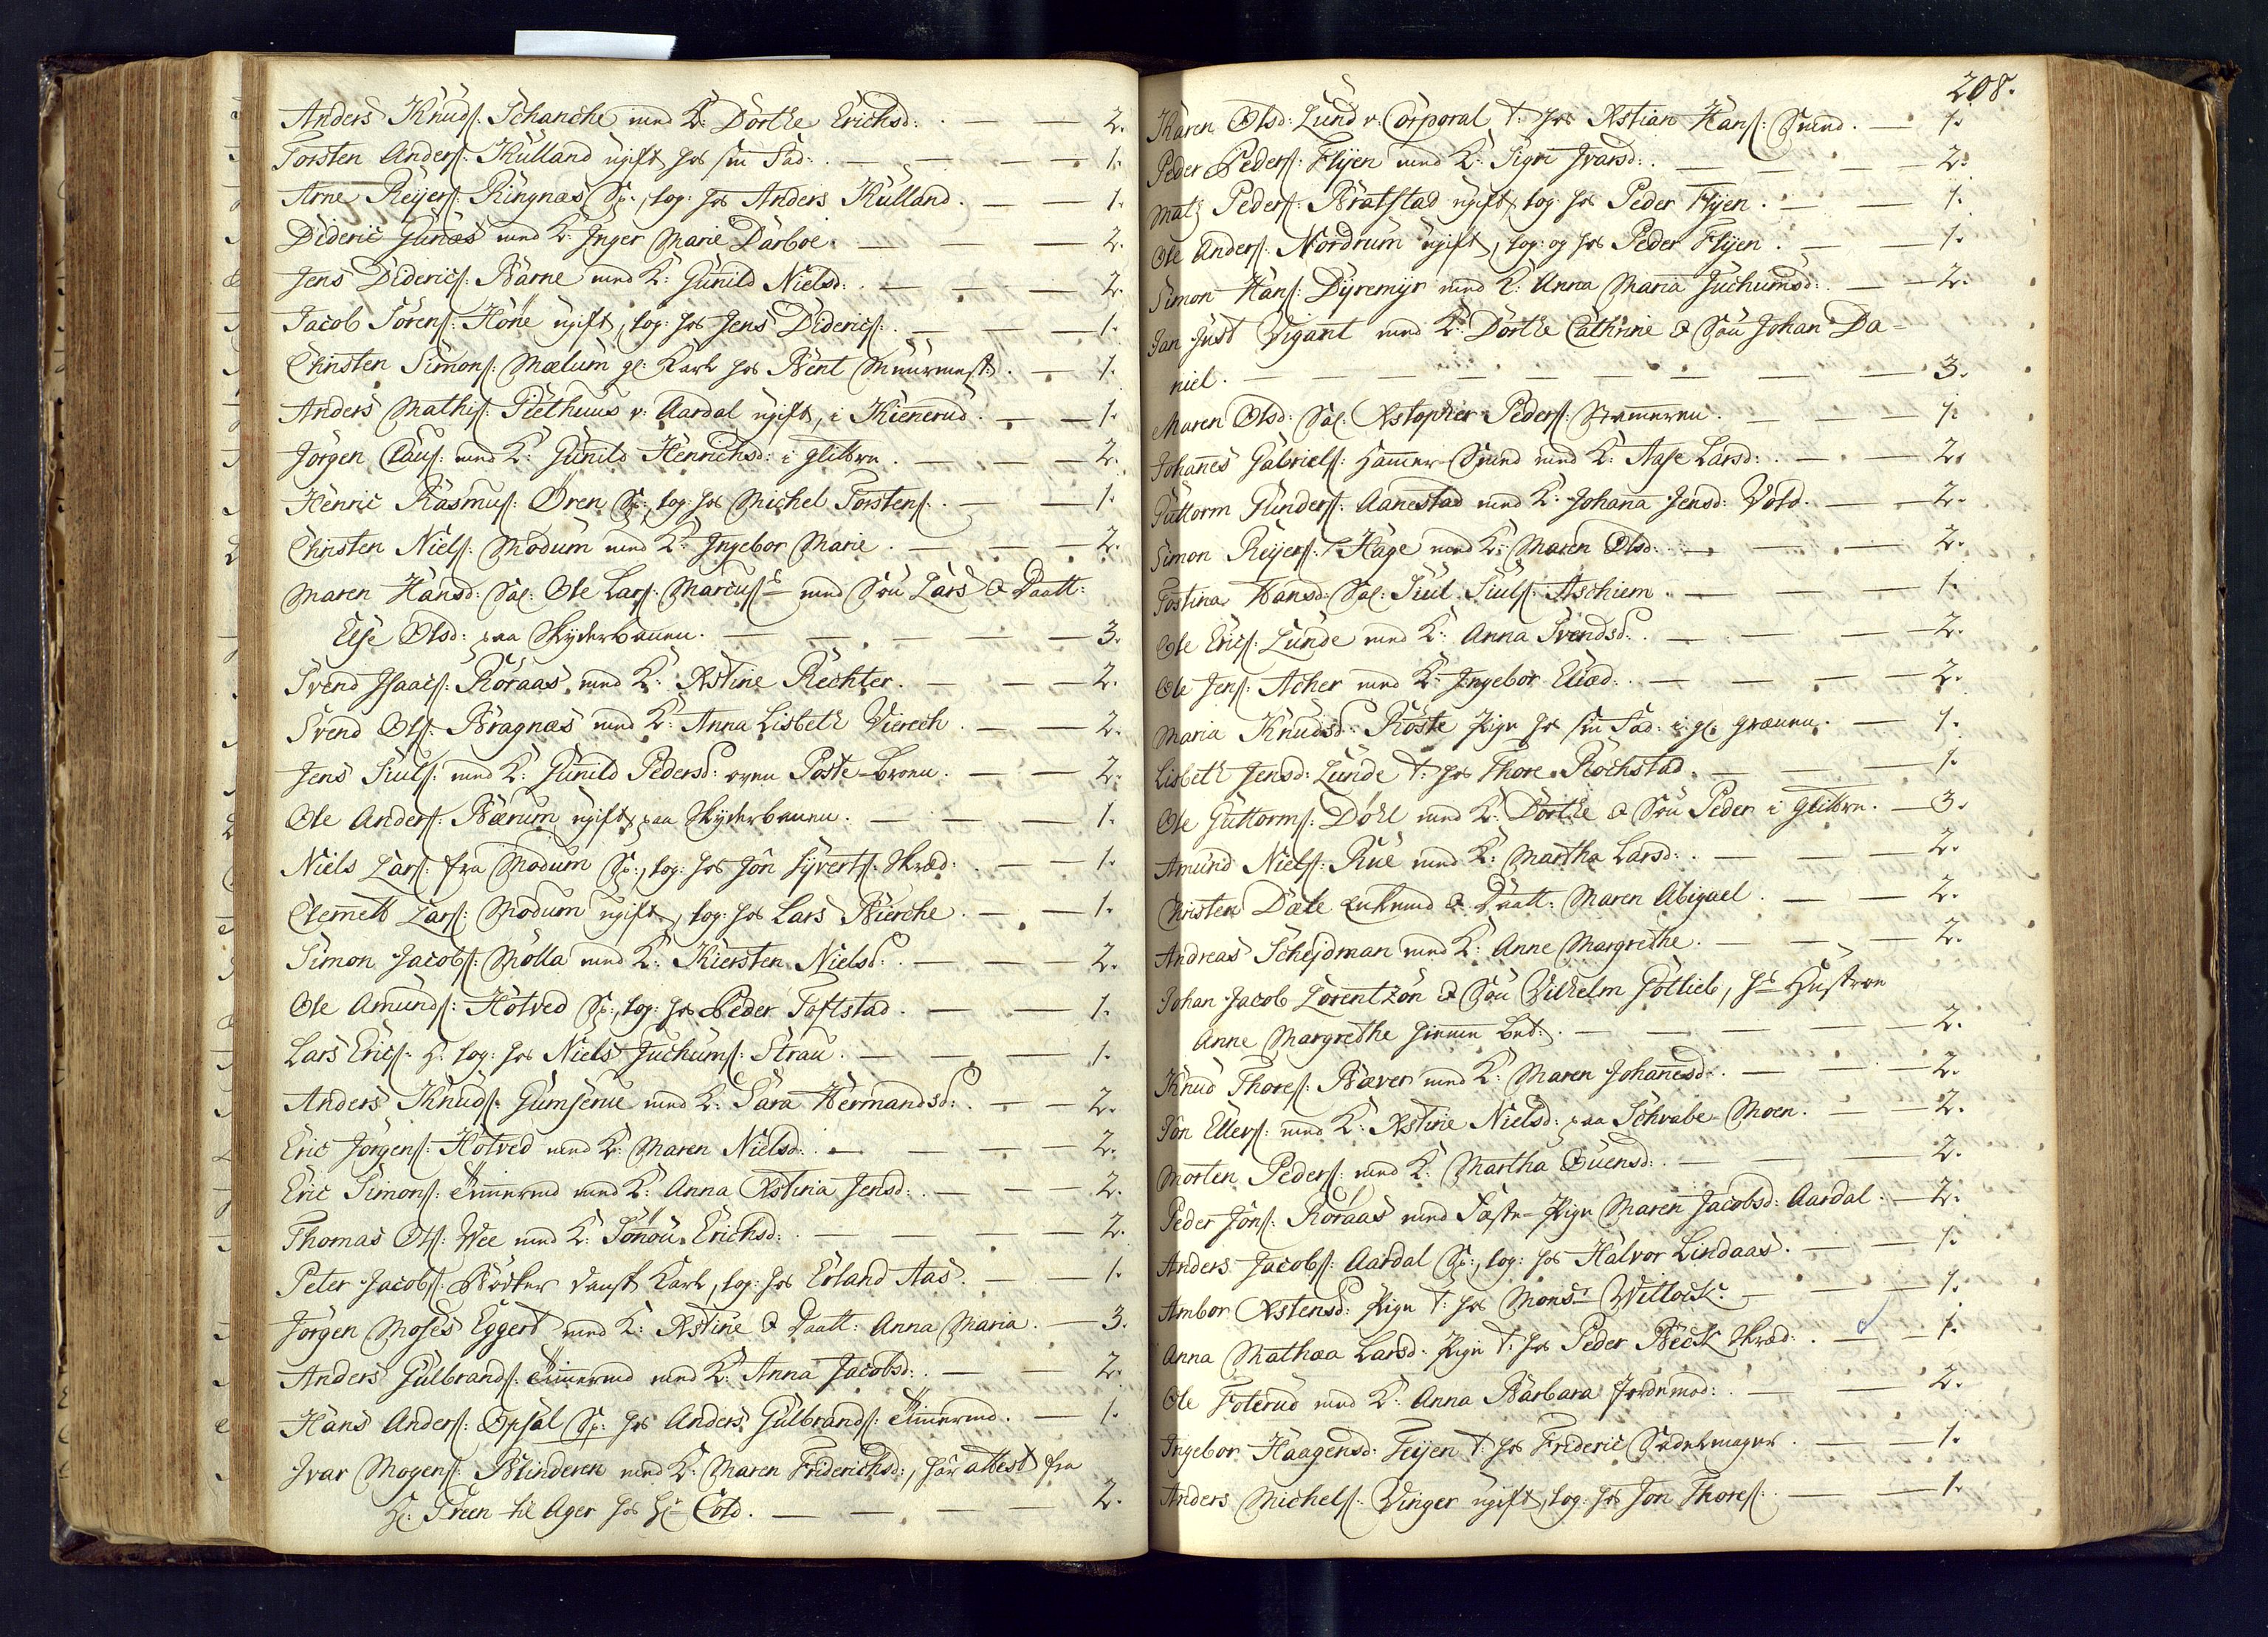 Anders Knuds: Schanche med K: Dorthe Erichsd: . — — 2.
Torsten Anders: Kulland ugift hos sin Fad: . — — — 1.
Arne Reyers: Ringnæs Sp:, log: hos Anders Kulland . — — 1.
Dideric Gunæs med K: Inger Marie Darboe . — — 2.
Jens Diderics: Barne med K: Gunild Nielsd: . — — 2.
Jacob Sørens: Høne ugift, log: hos Jens Diderics: . — — 1.
Christen Simons: Mælum gl: Karl hos Bent Muurmest: . — 1.
Anders Mathis: Piethuus v: Aardal ugift, i Kiennerud . — — 1.
Jørgen Claus: med K: Gunild Henrichsd: i Glitbre . — — 2.
Henric Rasmus: Øren Sp:, log: hos Michel Torstens: . — — 1.
Christen Niels: Modum med K: Ingebor Marie . — — — 2.
Maren Hansd: Sal: Ole Lars: Marcus: med Søn Lars & Daatt:
Else Olsd: paa Skyderbanen . — — — — 3.
Svend Isaacs: Roraas, med K: Kstine Rechter . — — 2.
Svend Ols: Bragnæs med K: Anna Lisbeth Vierech . — — 2.
Jens Siuls: med K: Gunild Pedersd: oven Poste-Broen . — — 2.
Ole Anders: Bærum ugift, paa Skyderbanen . — — — 1.
Niels Lars: fra Modum Sp:, log: hos Jon Syverts: Skræd: . — — 1.
Clemmet Lars: Modum ugift, log: hos Lars Bierche . — — 1.
Simon Jacobs: Mølla med K: Kiersten Nielsd: . — — 2.
Ole Amunds: Hotved Sp:, log: hos Peder Toftstad . — — 1.
Lars Erics: H: log: hos Niels Juchums: Strau . — — — 1.
Anders Knuds: Gumserue med K: Sara Hermandsd: . — — 2.
Eric Jørgens: Hotved med K: Maren Nielsd: . — — — 2.
Eric Simons: Timmermd med K: Anna Kstina Jensd: . — — 2.
Thomas Ols: Wee med K: Sønou Erichsd: — — — 2.
Peter Jacobs: Bødker dansk Karl, log: hos Erland Aas . — — 1.
Jørgen Moses Eggert med K: Kstine & Daatt: Anna Maria . — 3.
Anders Gulbrands: Timmermd med K: Anna Jacobsd: . — — 2.
Hans Anders: Opsal Sp: hos Anders Gulbrands: Timmermd . — 1.
Ivar Mogens: Blinderen med K: Maren Friderichsd:, har attest fra
Hr: Treen til Ager hos Hr Cold . — — — — 2.
208.
Karen Olsd: Lund v. Corporal t: hos Kstian Hans: Smed . — 1.
Peder Peders: Flyen med K: Sigri Ivarsd: . — — — 2.
Matz Peders: Bratstad ugift, log: hos Peder Flyen . — — 1.
Ole Anders: Nordrum ugift, log: og hos Peder Flyen . — — 1.
Simon Hans: Dyremyr med K: Anna Maria Juchumsd: . — — 2.
Jan Just Vigant med K: Dorthe Cathrine & Søn Johan Da-
niel . — — — — — — 3.
Maren Olsd: Sal: Kstopher Peders: . — — 1.
Johannes Gabriels: Hammer-Smed med K: Aase Larsd: . — — 2.
Guttorm Gunders: Aanestad med K: Johanna Jensd: Vold . — — 2.
Simon Reyers: Hage med K: Maren Olsd: . — — — 2.
Tostina Hansd: Sal: Siul Siuls: Aschiem . — — — 1.
Ole Erics: Lunde med K: Anna Svendsd: . — — — 2.
Ole Jens: Acher med K: Ingebor Eliæd: . — — — 2.
Maria Knudsd: Røste Pige hos sin Fad: i gl: grænen . — 1.
Lisbeth Jensd: Lunde t: hos Thore Rochstad . — — — 1.
Ole Guttorms: Døhl med K: Dorthe & Søn Peder i Glitbre . — 3.
Amund Niels: Rue med K: Martha Larsd: . — — — 2.
Christen Dæle Enkemd & Daatt: Maren Abigael . — — 2.
Andreas Schejdman med K: Anne Margrethe . — — — 2.
Johan Jacob Lorentzøn & Søn Vilhelm Gotlieb, hs Hustroe
Anne Margrethe hiemme bet: . — — — — 2.
Knud Thores: Bæver med K: Maren Johannesd: . — — 2.
Jon Ellevs: med K: Kstine Nielsd: paa Schrabe-Moen . — — 2.
Morten Peders: med K: Martha Guensd: . — — — 2.
Peder Jons: Roraas med Fæste-Pige Maren Jacobsd: Aardal . — 2.
Anders Jacobs: Aardal Sp:, log: hos Halvor Lindaas . — — 1.
Ambor Kstensd: Pige t: hos Monsr Willock . — — — 1.
Anna Mathæa Larsd: Pige t: hos Peder Beck Skræd: . — — 1.
Ole Foterud med K: Anna Barbara Jordemod: . — — 2.
Ingebor Haagensd: Feyen t: hos Frideric Sadelmager . — — 1.
Anders Michels: Vinger ugift, log: hos Jon Thores: . — — 1.